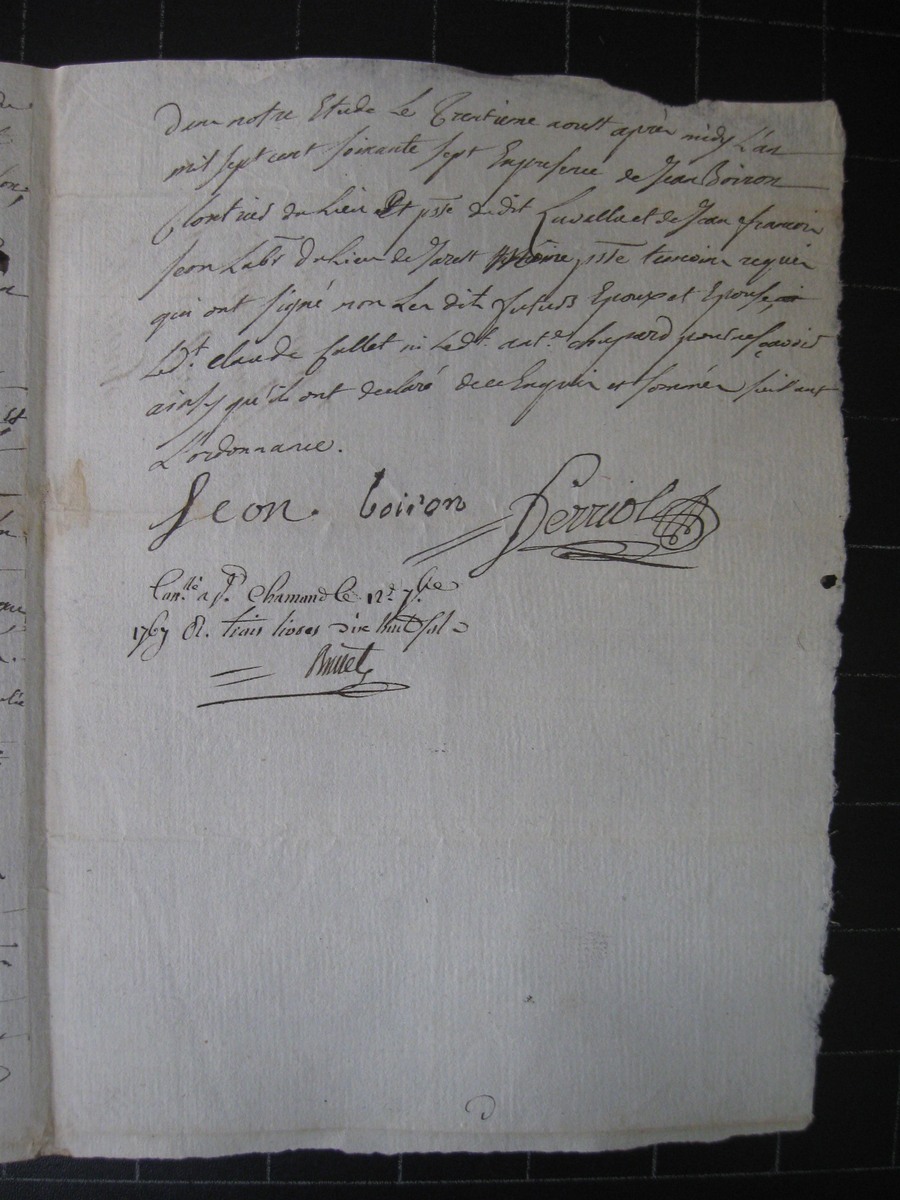 dans notre Etude Le Trentieme aoust après midy L'an
mil sept cent soixante sept En presence de Jean Boiron
du Lieu Et psse dudit Lavalla et de Jean francois
Seon Labr du Lieu de Jarest psse temoins requis
qui ont signé non Les dits futurs Epoux et Epouse
Led.t Claude Collet ni Led.t ant.e Chapard pour ne sçavoir
ainsy qu'ils ont declaré de ce Enquis et sommés suivant
L'ordonnance.
Seon. boiron Ferriol
Con.llé a S.t Chamond le 12.e 7.bre
1767 R. trois livres dix huit sols